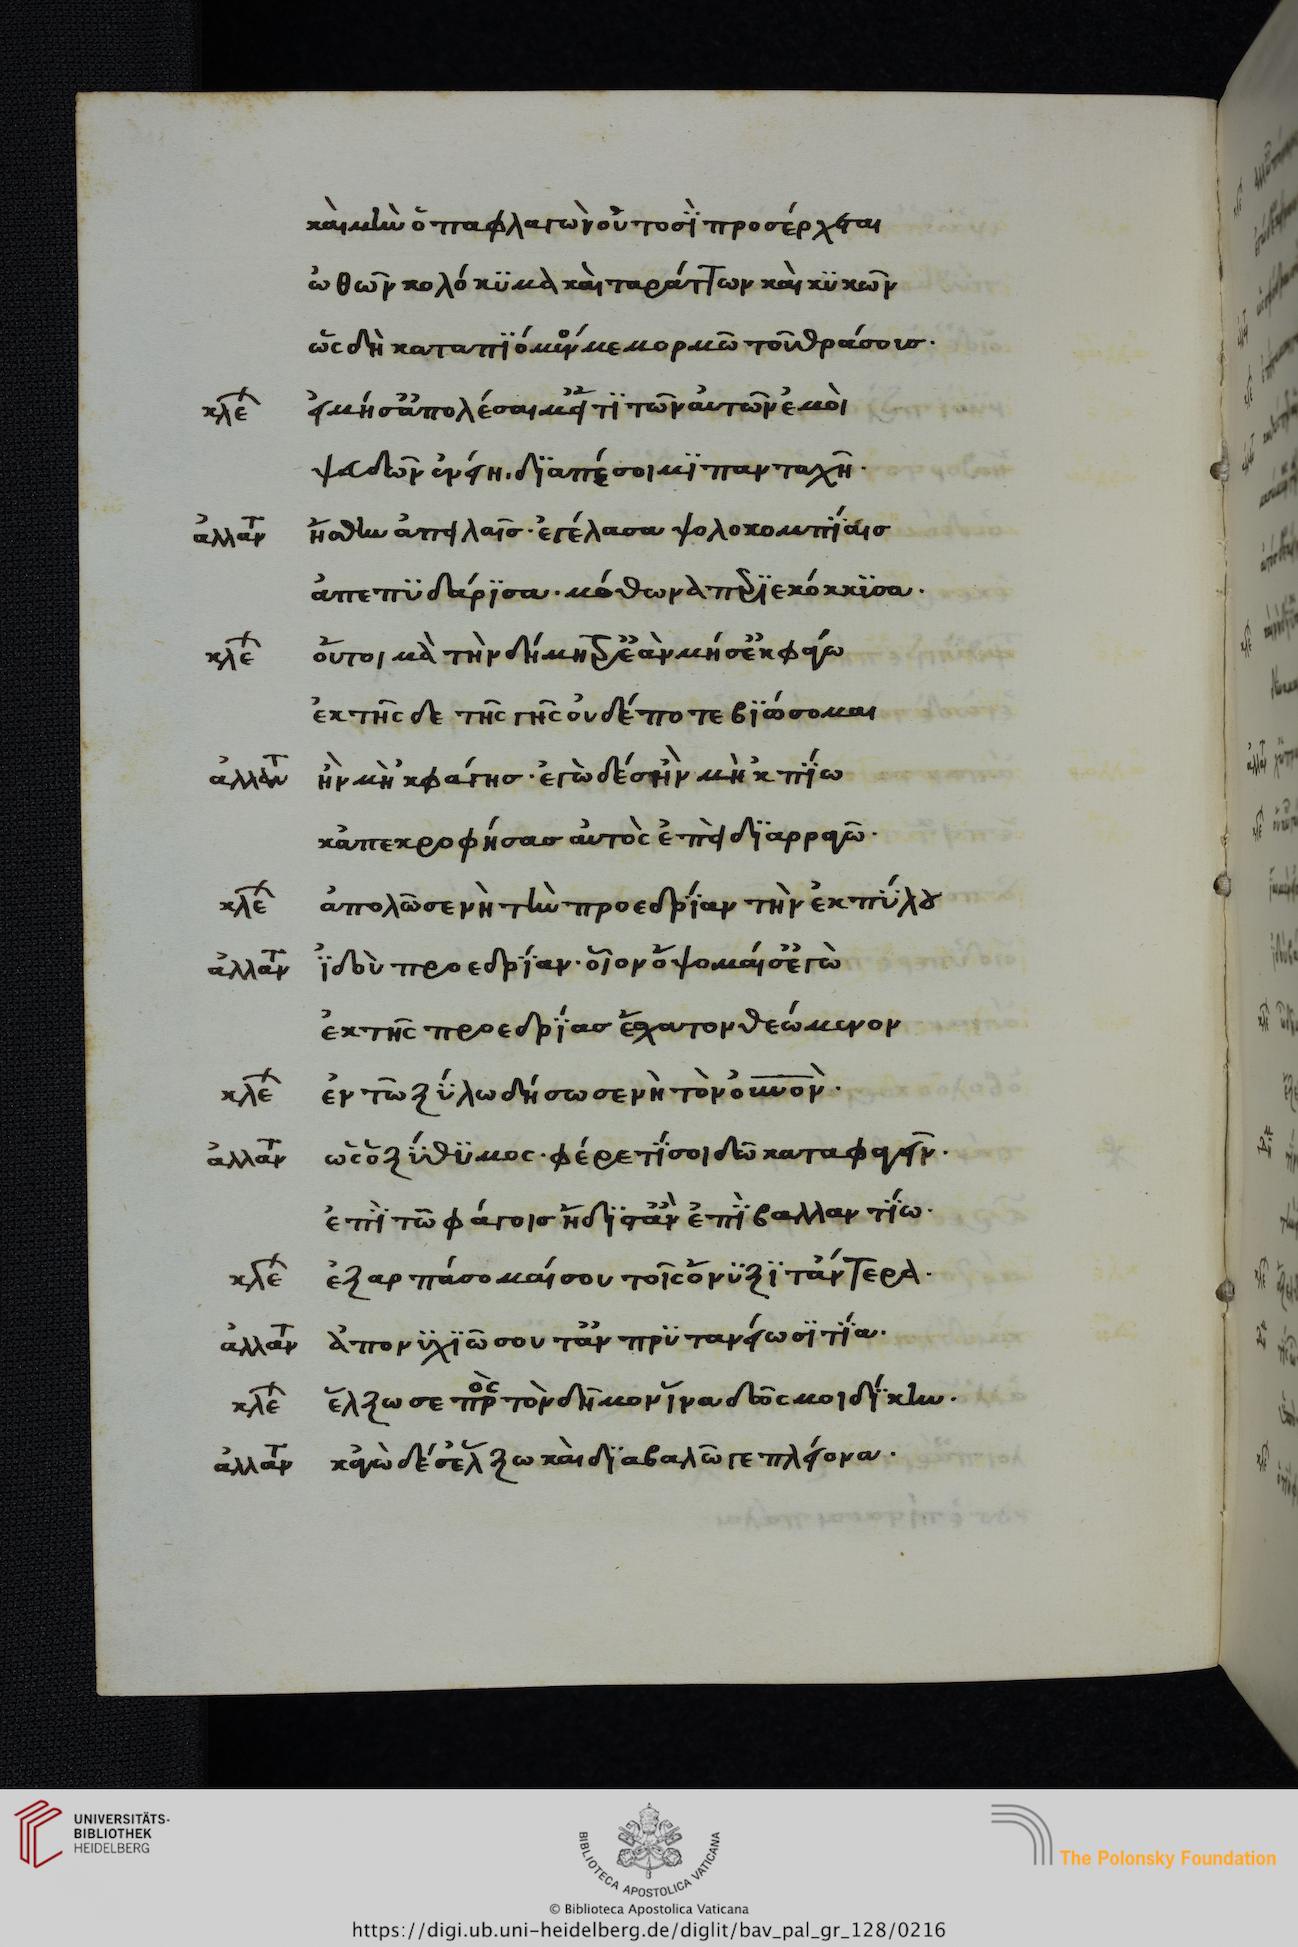 καὶ μὴν ὁ παφλαγὼν οὑτοσῒ προσέρχεται
ὠθῶν κολόκϋμα καὶ ταράττων καὶ κϋκῶν
ὡς δὴ καταπϊόμενόν με μορμῶ τοῦ θράσους.
κλέ εἰ μή σ' ἀπολέσαιμ' εἴ τϊ τῶν αὐτῶν ἐμοὶ
ψευδῶν ἐνείη. δϊαπέσοιμϊ πανταχῆ.
ἀλλαντ ἥσθην ἀπειλαῖς. ἐγέλασα ψολοκομπΐαις
ἀπεπϋδάρϊσα. μόθωνα περϊεκόκκϊσα.
κλέ οὔτοι μὰ τὴν δήμητρ' ἐὰν μή σ' ἐκφάγω
ἐκ τῆς δε τῆς γῆς οὐδέποτε βϊώσομαι
ἀλλαντ ἢν μὴ 'κφάγης. ἐγὼ δέ σ' ἢν μὴ 'κπΐω
κἀπεκροφήσας αὐτὸς ἐπὶ δϊαρραγῶ.
κλέ ἀπολῶ σε νὴ τὴν προεδρΐαν τὴν ἐκ πΰλου
ἀλλαντ ἰδοὺ προεδρΐαν. οἷον ὄψομαί σ' ἐγὼ
ἐκ τῆς προεδρΐας ἔσχατον θεώμενον
κλέ ἐν τῶ ξΰλω δήσω σε νὴ τὸν οὐνὸν.
ἀλλαντ ὡς ὀξΰθϋμος. φέρε τΐ σοι δῶ καταφαγεῖν.
ἐπῒ τῶ φάγοις ἥδϊστ' ἂν ἐπῒ βαλλαντΐω.
κλέ ἐξαρπάσομαί σου τοῖς ὄνϋξϊ τἄντερα.
ἀλλαντ ἀπονϋχϊῶ σου τἀν πρϋτανείω σϊτΐα.
κλέ ἕλξω σε πρὸς τὸν δῆμον ἵνα δῶς μοι δΐκην.
ἀλλαντ κἀγὼ δέ σ' ἕλξω καὶ δϊαβαλῶ γε πλείονα.
UNIVERSITÄTS-
BIBLIOTHEK
HEIDELBERG
BIBLIOTECA APOSTOLICA VATICANA
© Biblioteca Apostolica Vaticana
The Polonsky Foundation
https://digi.ub.uni-heidelberg.de/diglit/bav_pal_gr_128/0216